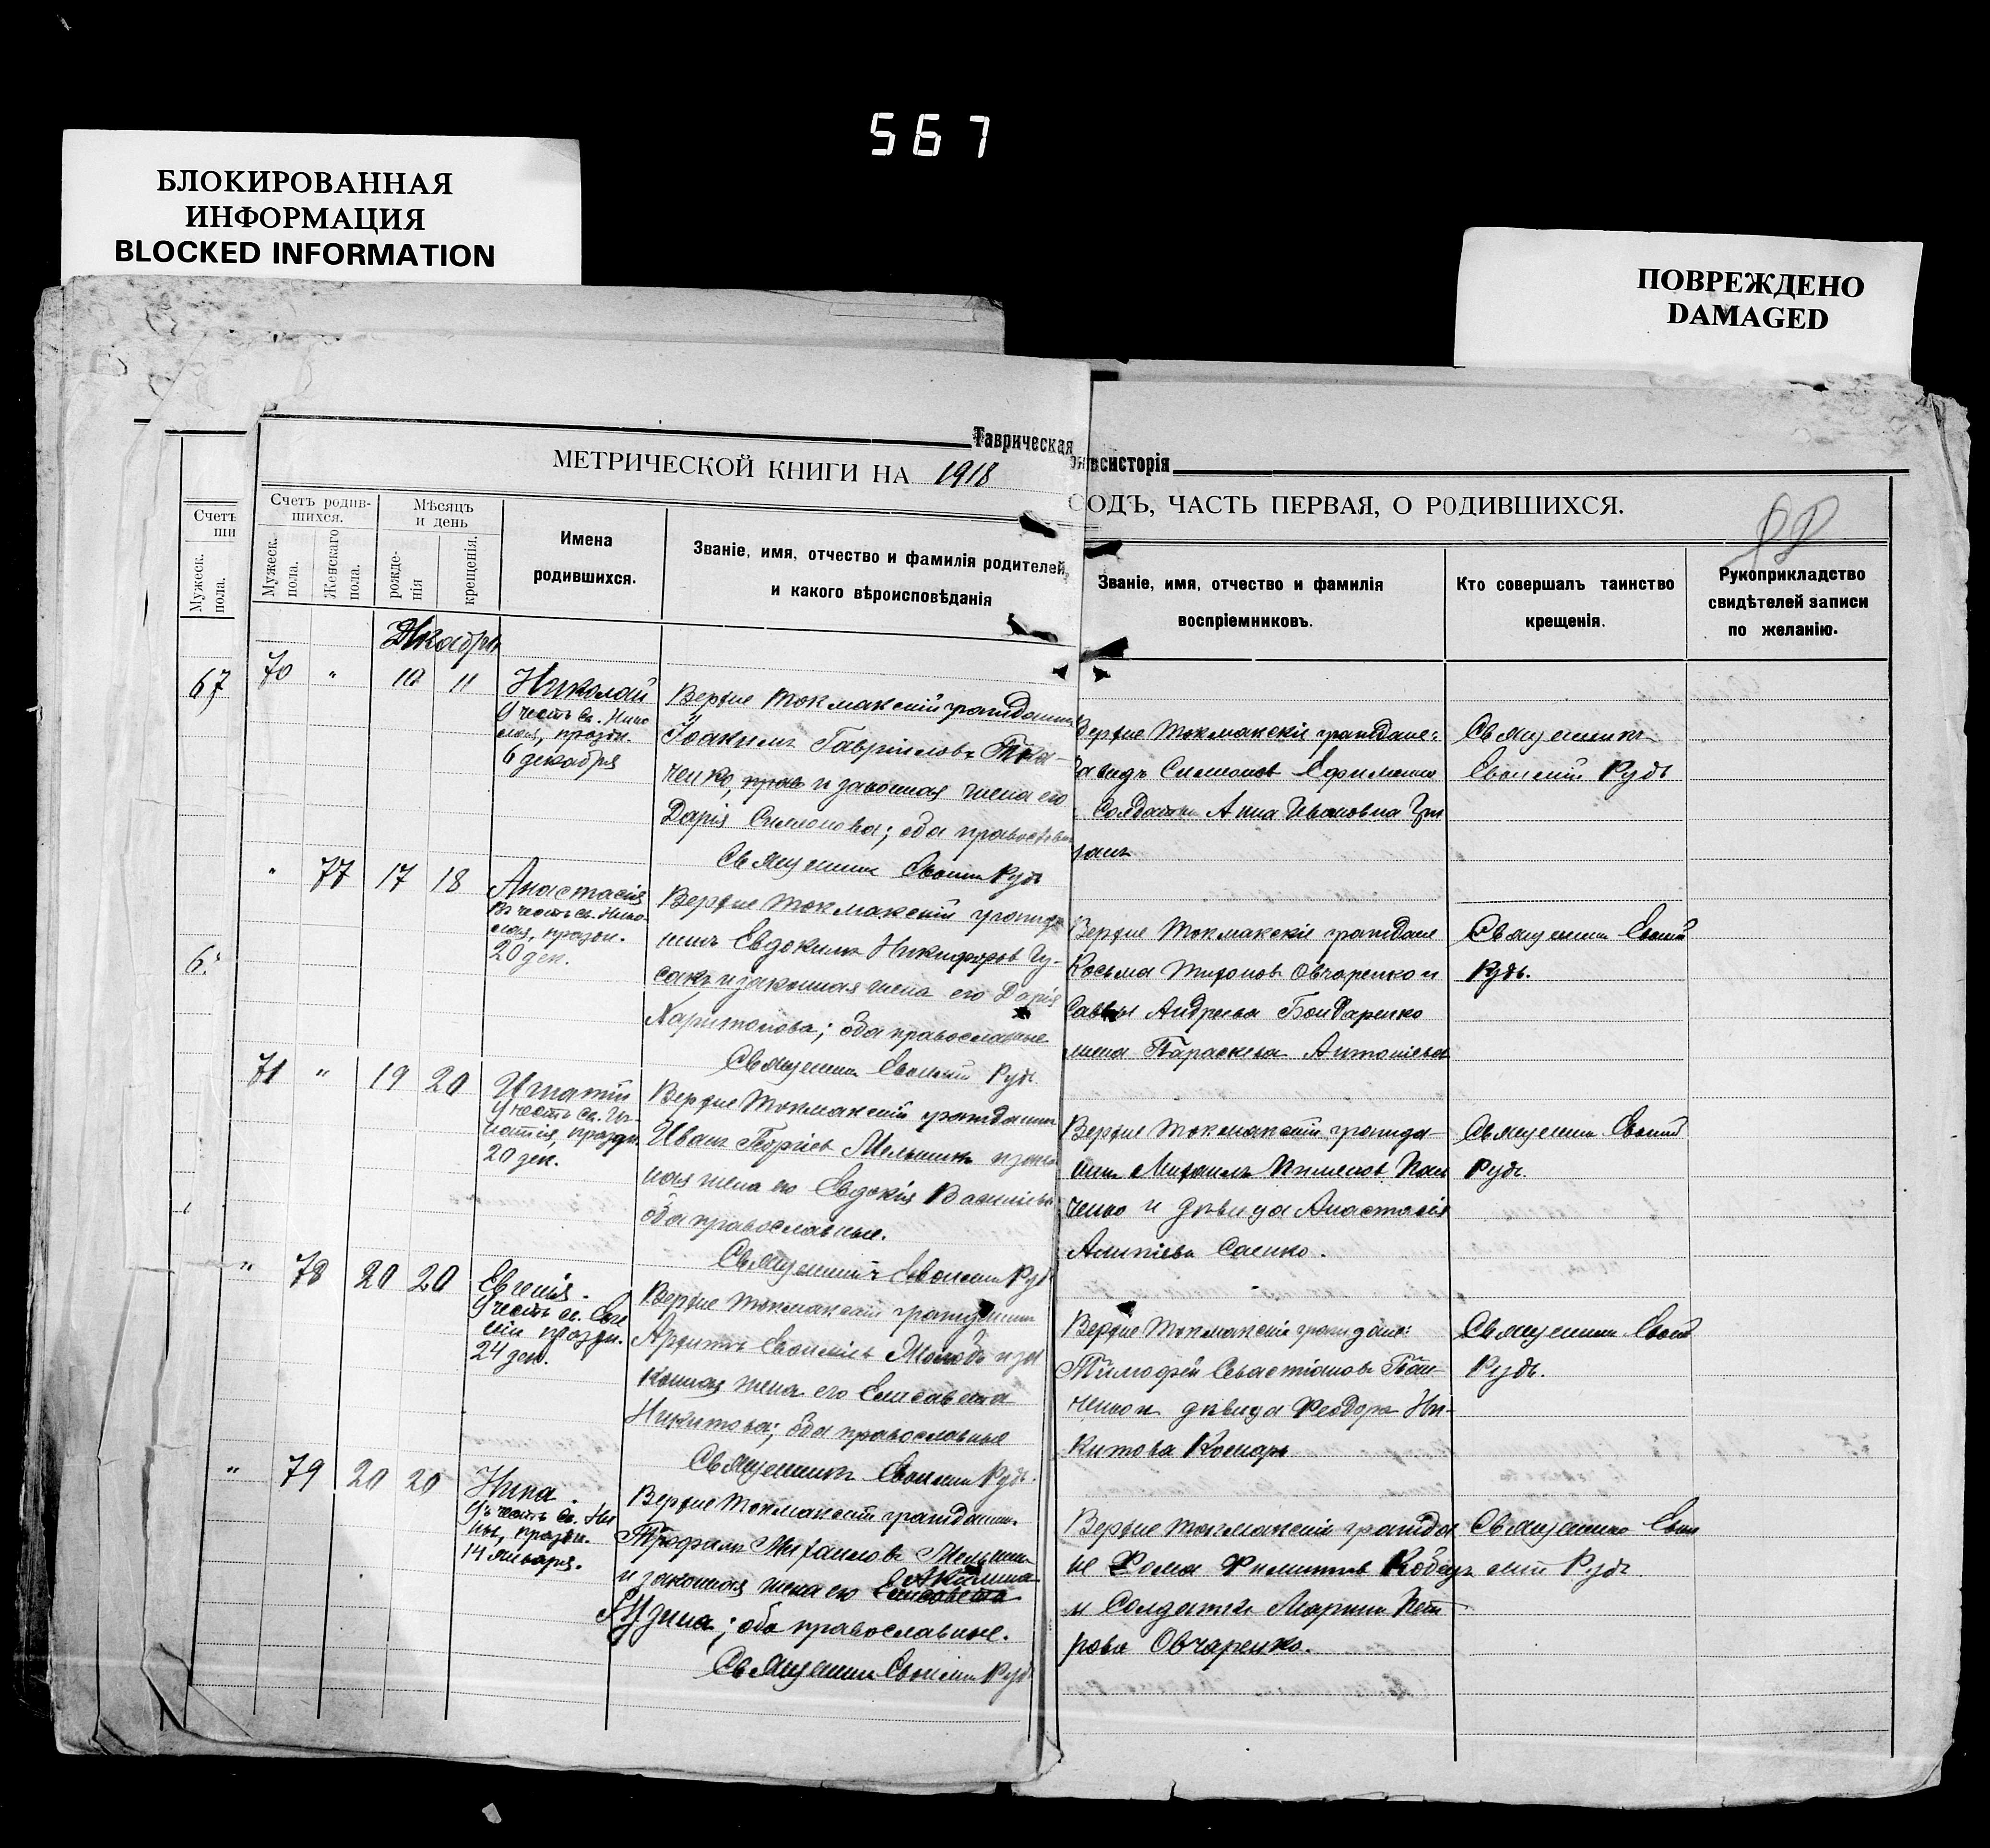 567
БЛОКИРОВАННАЯ
ИНФОРМАЦИЯ
BLOCKED INFORMATION
ПОВРЕЖДЕНО
DAMAGED
Таврическая
нсисторія
МЕТРИЧЕСКОЙ КНИГИ НА 1918
ОДЪ, ЧАСТЬ ПЕРВАЯ, О РОДИВШИХСЯ.
Счетъ
ши
Мужеск.
пола.
Счетъ родив-
шихся.
Мужеск.
пола.
Женскаго
пола.
Мѣсяцъ
и день
рожде-
нія
крещенія.
Имена
родившихся.
Званіе, имя, отчество и фамилія родителей,
и какого вѣроисповѣданія
Званіе, имя, отчество и фамилія
воспріемниковъ.
Кто совершалъ таинство
крещенія.
Рукоприкладство
свидѣтелей записи
по желанію.
Декабрь
67
70 " 10 11
Николай
Въ честь Св. Нико
лая, праздн.
6 декабря
Верхне Токмакскій гражданин
Іоакимъ Гавріиловъ Тка-
ченко, и законная жена его
Дарія Симонова; оба православн
Священник Евсигній Рудь
Верхне Токмакскіе граждане:
Давидъ Симоновъ Ефименко
Солдатка Анна Ивановна
Священникъ
Евсигній Рудь
" 77 17 18
Анастасія
Въ честь св.
праздн.
20 дек.
Верхне Токмакскій гражда
нинъ Евдокимъ Никифоров Гу-
сакъ и законная жена его Дарія
Харитонова; оба православные
Священник Евсигній Рудь
Верхне Токмакскіе граждане
Косьма Тихонов Овчаренко и
Саввы Андреева Бондаренко
жена Параскева Антоніева
Священник Евсигній
Рудь.
71 " 19 20
Игнатій
Въ честь Св. Иг-
натія, праздн.
20 дек.
Верхне Токмакскій гражданин
Иванъ Георгіев Мельник и закон
ная жена его Евдокія Васильева
оба православные.
Священникъ Евсигній Рудь
Верхне Токмакскій гражда-
нин Михаилъ Пименов Пан
ченко и дѣвица Анастасія
Алипіева Саенко.
Священник Евсигній
Рудь.
" 78 20 20
Евгенія.
Въ честь св. Евге
ніи праздн.
24 дек.
Верхне Токмакскій гражданин
и за
конная жена его Елисавета
Никитова; оба православные
Священникъ Евсигній Рудь.
Верхне Токмакскіе граждане:
Тимофей Севастіановъ Пан-
ченко и дѣвица Феодора Ни-
китова
Священник Евсигній
Рудь.
" 79 20 20
Нина.
Въ честь Св. Ни
ны, праздн.
14 января.
Верхне Токмакскій гражданин
Трофимъ Михаиловъ Мельник
Акилина
и законная жена его Елисавета
; оба православные.
Священник Евсигній Рудь
Верхне Токмакскій гражда
не Фома Филиппов Кобец
и Солдатка Марина Пет
рова Овчаренко.
Священник Евси
гній Рудь